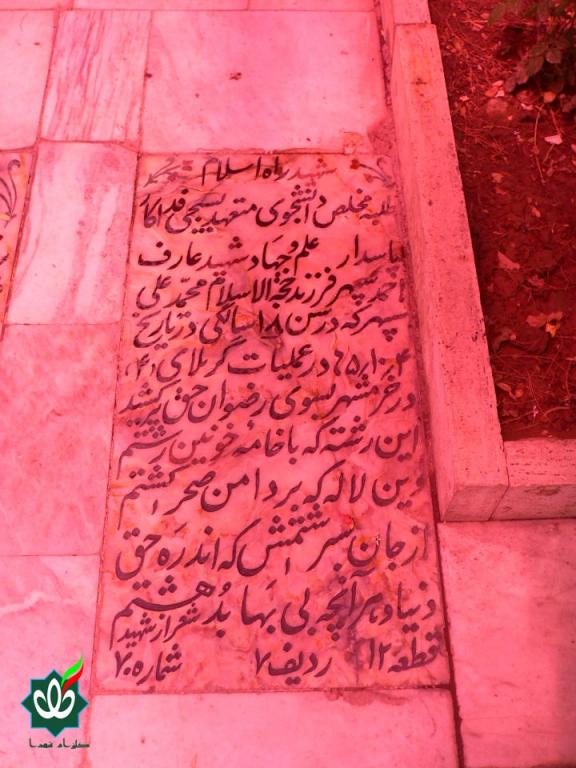 شهید راه اسلام
طلبه مخلص دانشجوی متعهد بسیجی فداکار
پاسدار علم و جهاد شهید عارف
احمد سپهر فرزند حجة الاسلام محمد علی
سپهر که در سن ۱۸ سالگی در تاریخ
۶۵٫۱۰٫۴ در عملیات کربلای (۴)
در خرمشهر بسوی رضوان حق پر کشید
این رشته که با خامه خونین رشتم
وین لاله که بر دامن صحرا کشتم
از جان بسرشتمش که اندر ره حق
دنیا و هر آنچه بی بها بُد هشتم
شعر از شهید
قطعه ۱۲ ردیف ۷ شماره ۷۰
گلزار شهدا